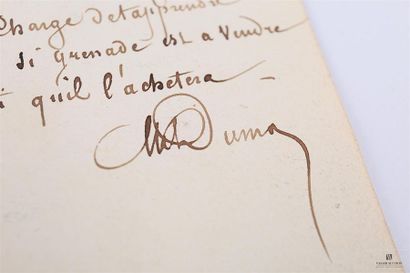 charge de t'apprendre
si grenade est a vendre
qu'il l'achetera
Dumas